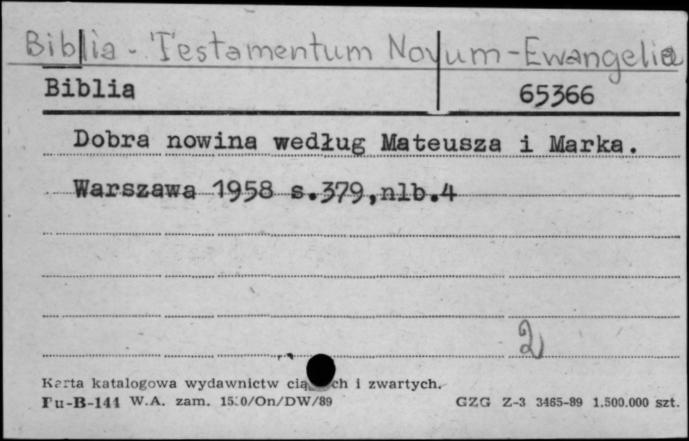 Biblia - Testamentum Novum - Ewangelia
Biblia 65366
Dobra nowina według Mateusza i Marka.
Warszawa 1958 s.379,nlb.4
2
Karta katalogowa wydawnictw ch i zwartych.
Pu-B-141 W.A. zam. /On/DW/89 GZG Z-3 3465-89 1.500.000 szt.